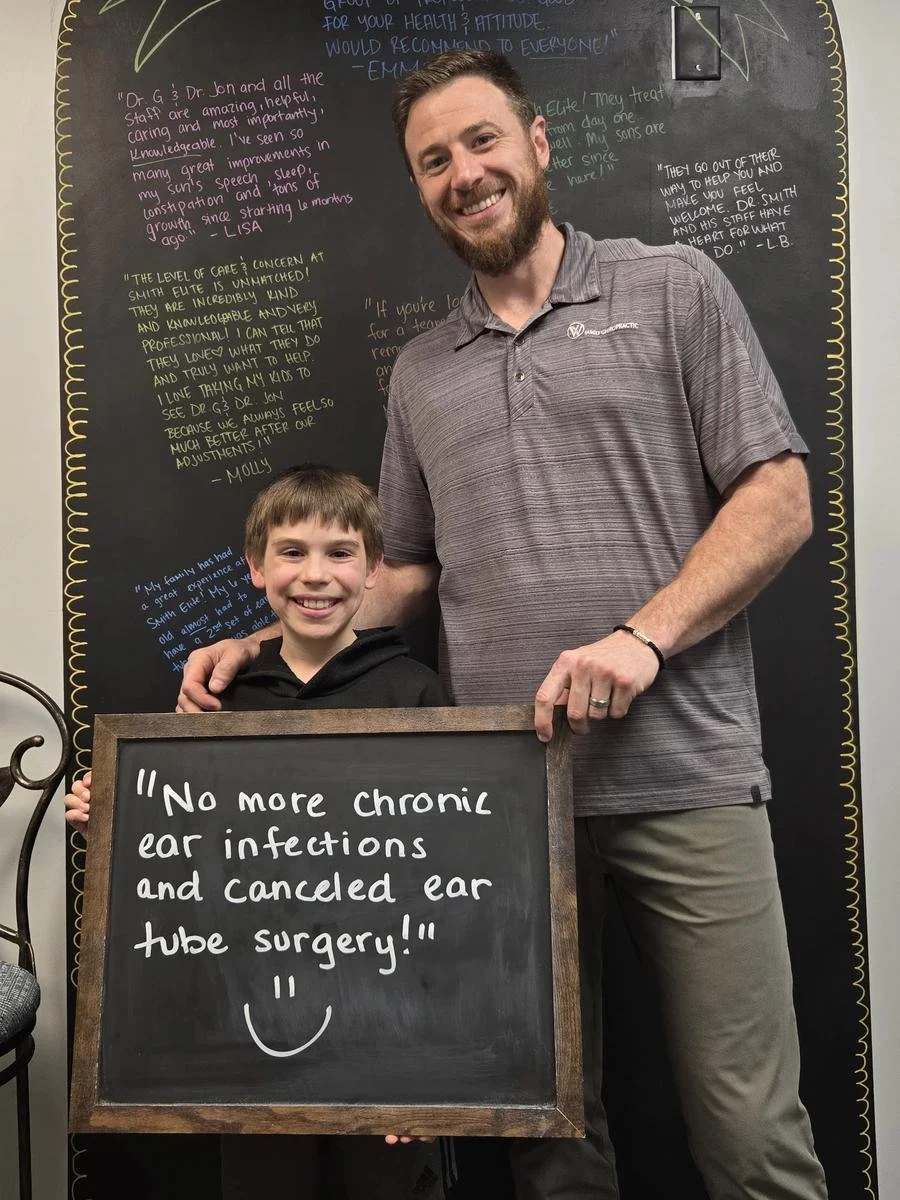 GROUP OF
FOR YOUR HEALTH & ATTITUDE.
WOULD RECOMMEND TO EVERYONE!"
"Dr. G & Dr. Jon and all the
staff are amazing, helpful,
caring and most importantly,
Knowledgeable. I've seen so
many great improvements in
my son's speech, sleep,
constipation and 'tons of
growth since starting 6 months
ago." - LISA
Elite! They treat
from day one
well. My sons are
since
here!"
"THEY GO OUT OF THEIR
WAY TO HELP YOU AND
MAKE YOU FEEL
WELCOME. DR. SMITH
AND HIS STAFF HAVE
A HEART FOR WHAT
DO." -L.B.
"THE LEVEL OF CARE & CONCERN AT
SMITH ELITE IS UNMATCHED!
THEY ARE INCREDIBLY KIND
AND KNOWLEDGABLE AND VERY
PROFESSIONAL! I CAN TELL THAT
THEY LOVE♡ WHAT THEY DO
AND TRULY WANT TO HELP.
I LOVE TAKING MY KIDS TO
SEE DR. G & DR. JON
BECAUSE WE ALWAYS FEEL SO
MUCH BETTER AFTER OUR
ADJUSTMENTS!"
- MOLLY
"If you're
for a team
W FAMILY CHIROPRACTIC
"My family has had
a great experience at
Smith Elite! My 6
old almost had to
have a 2nd set of
"No more chronic
ear infections
and canceled ear
tube surgery!"